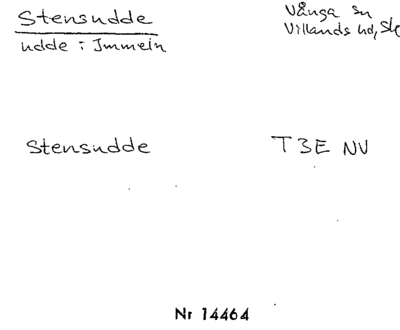 Stensudde
udde i Immeln
Vånga sn
Villands hd, Sk
Stensudde
T 3E NV
Nr 14464